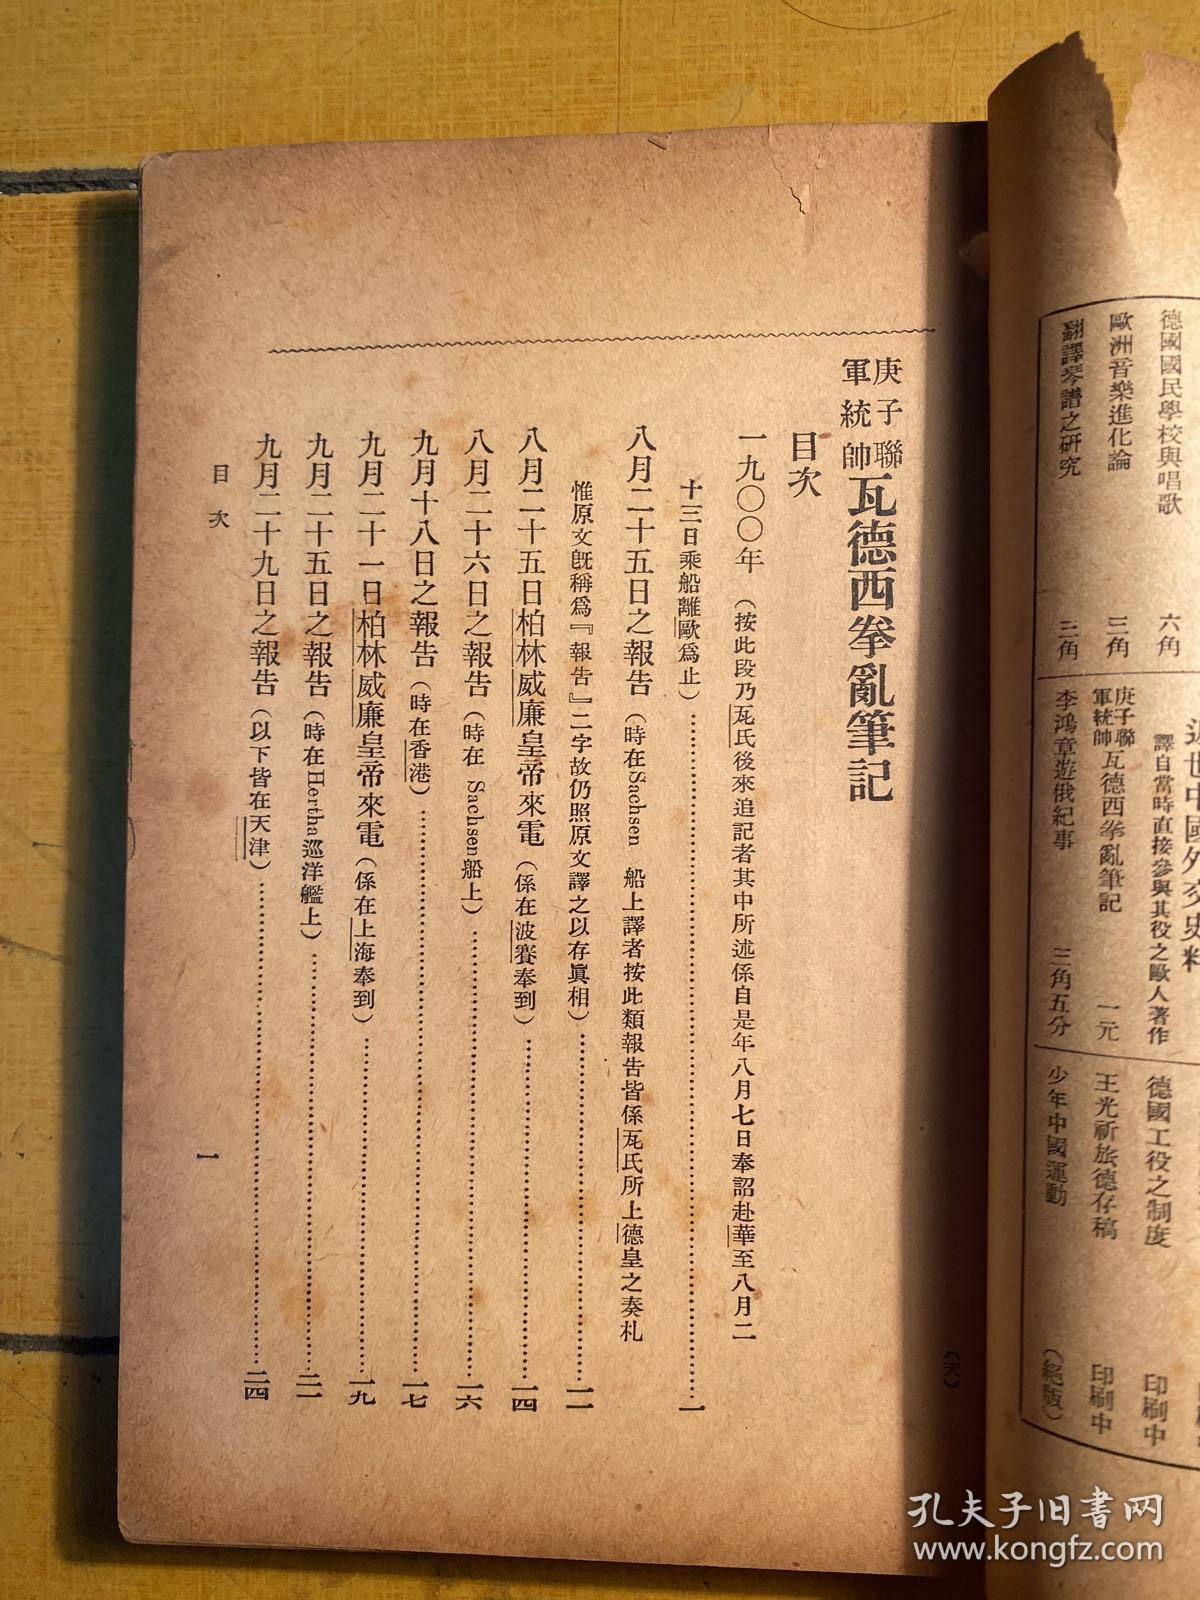 德國國民學校與唱歌 六角
歐洲音樂進化論 三角
翻譯琴譜之研究 三角
近世中國外交史料
譯自當時直接參與其役之歐人著作
庚子聯軍統帥瓦德西拳亂筆記 一元
李鴻章遊俄紀事 三角五分
德國工役之制度 印刷中
王光祈旅德存稿 印刷中
少年中國運動 (絕版)
(天)
庚子聯軍統帥瓦德西拳亂筆記
目次
一九〇〇年(按此段乃瓦氏後來追記者其中所述係自是年八月七日奉詔赴華至八月二
十三日乘船離歐為止)……一
八月二十五日之報告(時在Sachsen 船上譯者按此類報告皆係瓦氏所上德皇之奏札
惟原文既稱爲『報告』二字故仍照原文譯之以存眞相)……一一
八月二十五日柏林威廉皇帝來電(係在波賽奉到)……一四
八月二十六日之報告(時在 Sachsen船上)……一六
九月十八日之報告(時在香港)……一七
九月二十一日柏林威廉皇帝來電(係在上海奉到)……一九
九月二十五日之報告(時在Hertha巡洋艦上)……二一
九月二十九日之報告(以下皆在天津)……二四
目次
一
孔夫子旧书网
www.kongfz.com